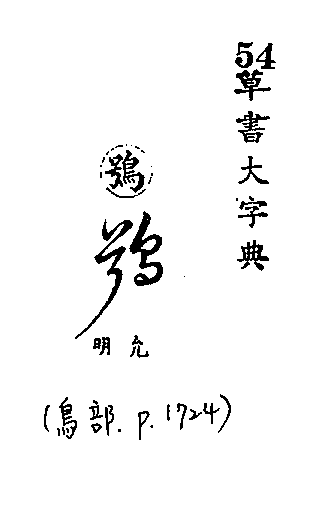 54
草書大字典
鶚
鶚
允明
(鳥部.p.1724)